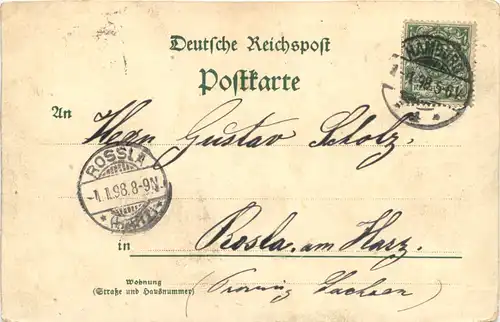 Deutsche Reichspost
Postkarte
HAMBURG
1.1.98.5-6N.
1
An Herrn Gustav Scholz.
ROSSLA
1.1.98.8-9N.
(HARZ)
in Rosla am Harz.
Wohnung
(Straße und Hausnummer)
(Provinz Sachsen)